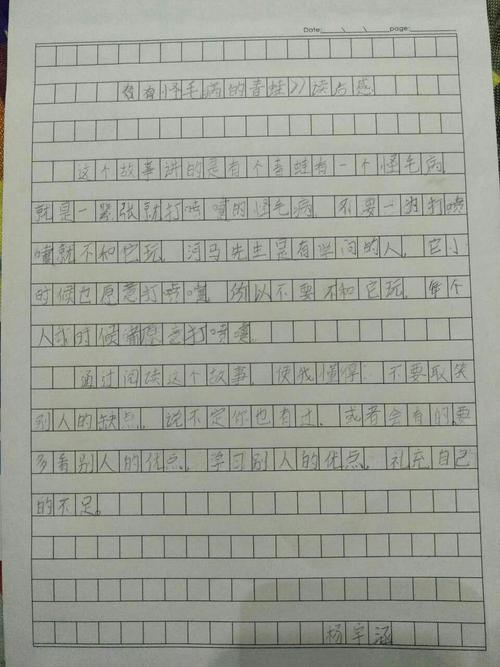 Date: \ \ page:
《有怪毛病的青蛙》读后感
这个故事讲的是有个青蛙有一个怪毛病
就是一紧张就打喷嚏的怪毛病。不要一打喷
嚏就不和它玩。河马先生是有学问的人。它小
时候也愿意打喷嚏。所以不要不和它玩。每个
人小时候都愿意打喷嚏。
通过阅读这个故事。使我懂得：不要取笑
别人的缺点。说不定你也有过。或者会有的要
多看别人的优点。学习别人的优点。补充自己
的不足。
杨宇涵